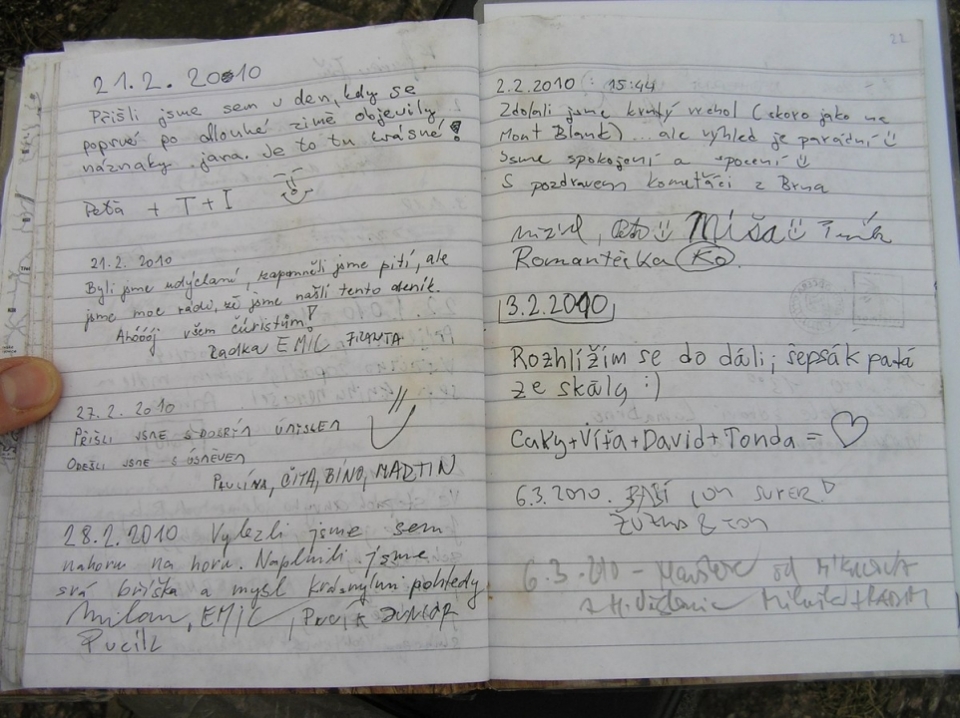 21.2. 2010
Přišli jsme sem v den, kdy se
poprvé po dlouhé zimě objevily
náznaky jara. Je to tu krásné!
Peťa + T + I
21.2. 2010
Byli jsme udýchaní, zapomněli jsme pití, ale
jsme moc rádi, že jsme našli tento deník.
Ahóóój všem čúristům!
Radka EMIL FRANTA
27.2. 2010
PŘIŠLI JSME S DOBRÝM ÚMISLEM
ODEŠLI JSME S ÚSMĚVEM
PAVLÍNA, ČITA, BÍNO, MARTIN
28.2.2010 Vylezli jsme sem
nahoru na horu. Naplnili jsme
svá bříška a mysl krásnými pohledy
Milan, EMIL,
Pucilk
22
2.2.2010 15:44
Zdolali jsme krutý vrchol (skoro jako na
Mont Blank)... ale výhled je parádní
Jsme spokojení a spocení
S pozdravem kometáci z Brna
Míša
Romantérka Ko
3.2.2010
Rozhlížím se do dáli; šepsák padá
ze skály :)
Caky+Víťa+David+Tonda =
6.3.2010. BABÍ LOM SUPER!
6.3.2010 - od